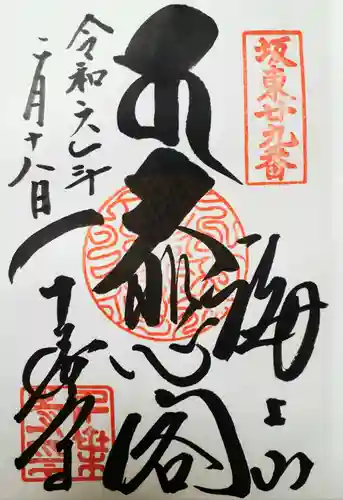 坂東廿九番
海上山
大悲閣
令和六年
二月十八日
千葉寺